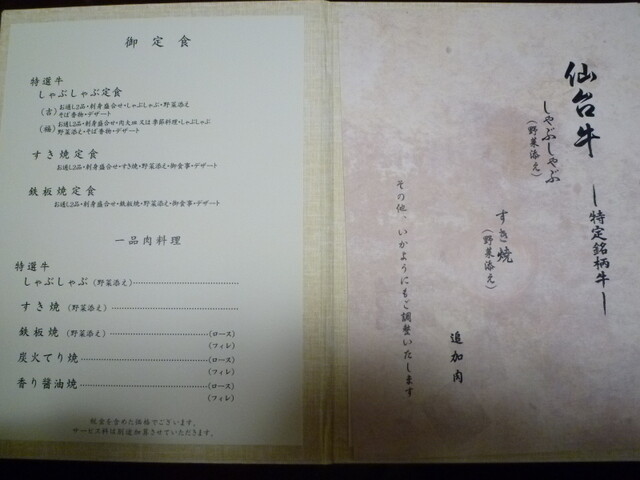 御定食
特選牛
しゃぶしゃぶ定食
お通し2品・刺身盛合せ・しゃぶしゃぶ・野菜添え
そば香物・デザート
お通し2品・刺身盛合せ・肉大皿又は季節料理・しゃぶしゃぶ
野菜添え・そば香物・デザート
すき焼定食
お通し2品・刺身盛合せ・すき焼・野菜添え・御食事・デザート
鉄板焼定食
お通し2品・刺身盛合せ・鉄板焼・野菜添え・御食事・デザート
一品肉料理
特選牛
しゃぶしゃぶ(野菜添え)
すき焼(野菜添え)
鉄板焼(野菜添え) (ロース)
(フィレ)
炭火てり焼 (ロース)
(フィレ)
香り醤油焼 (ロース)
(フィレ)
税金を含めた価格でございます。
サービス料は別途加算させていただきます。
仙台牛
―特定銘柄牛―
しゃぶしゃぶ
(野菜添え)
すき焼
(野菜添え)
追加肉
その他、いかようにもご調整いたします